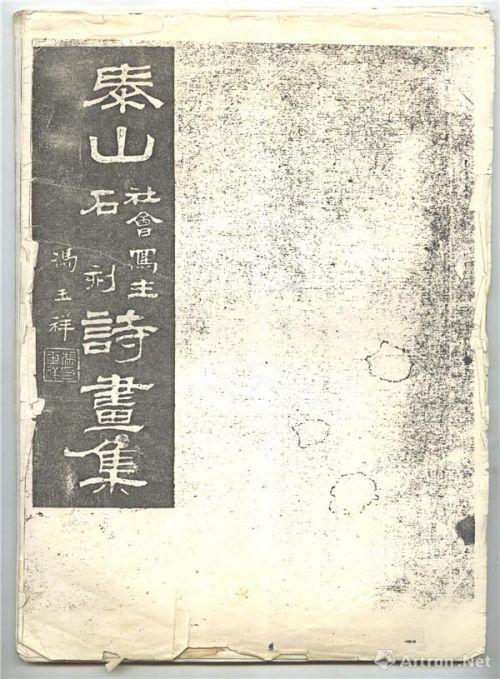 泰山
社會寫生
石刻
詩畫集
馮玉祥
Artron.Net